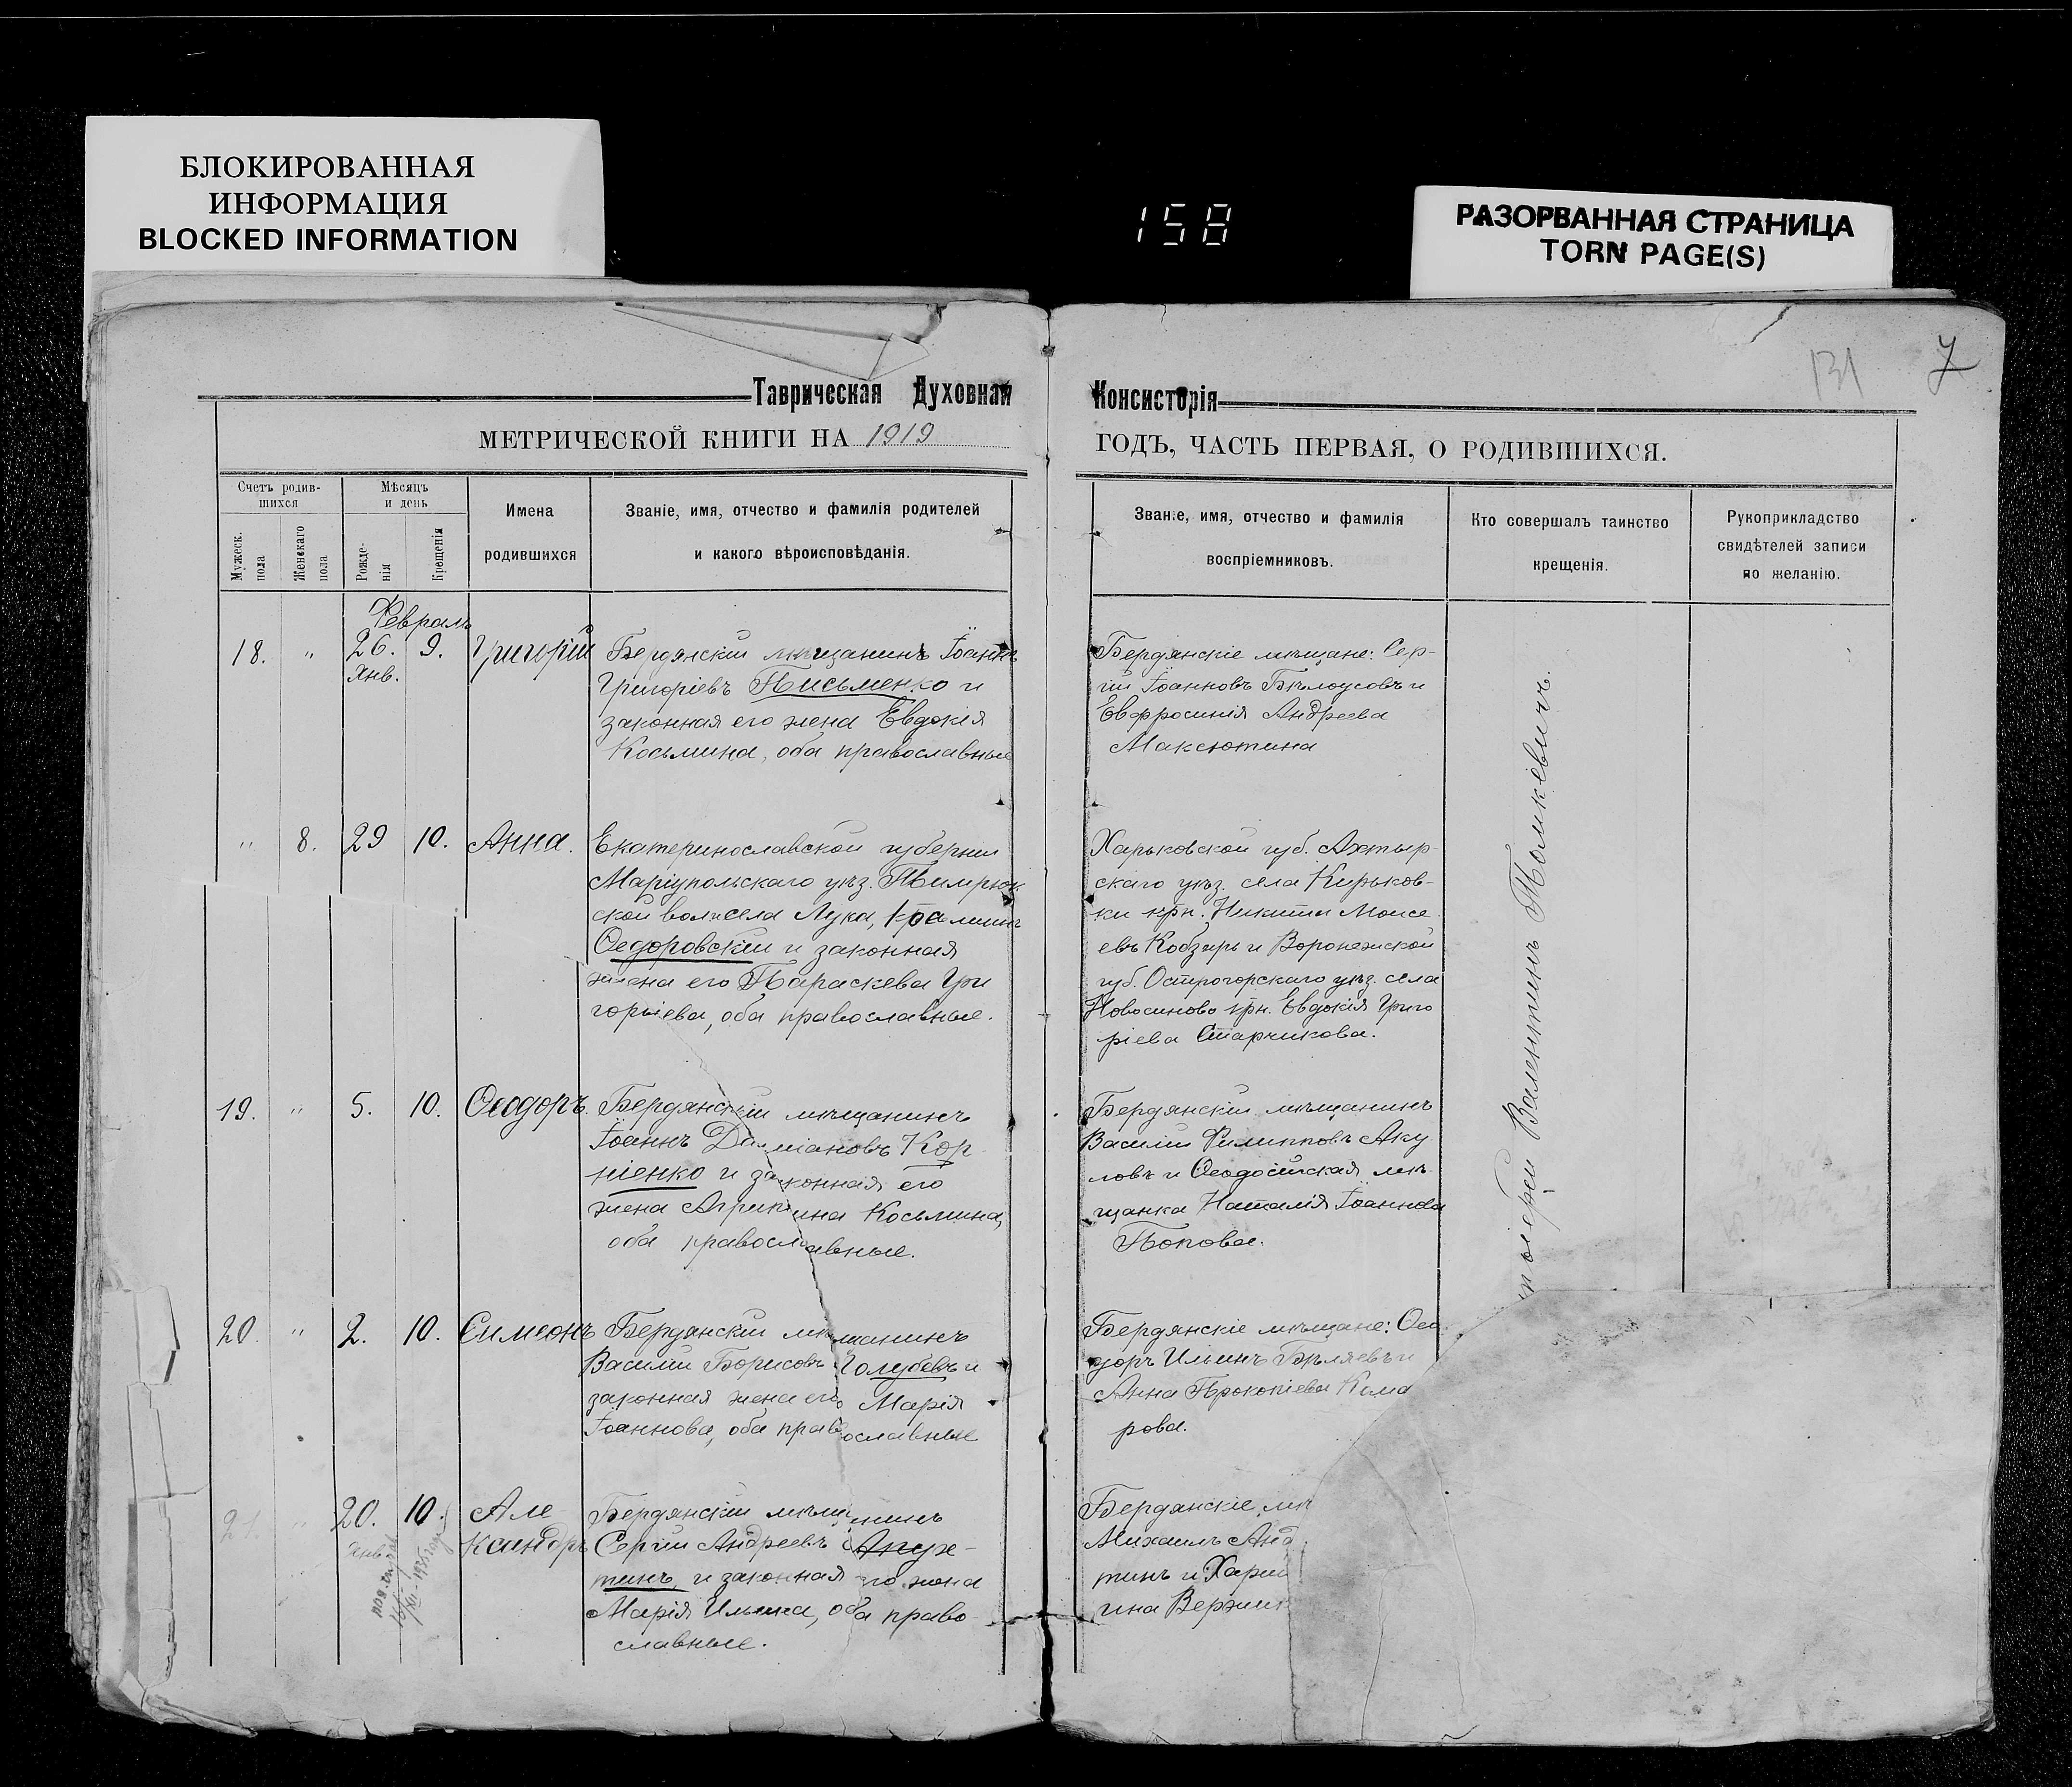 БЛОКИРОВАННАЯ
ИНФОРМАЦИЯ
BLOCKED INFORMATION
158
РАЗОРВАННАЯ СТРАНИЦА
TORN PAGE(S)
131
7
Таврическая Духовная
Консисторія
МЕТРИЧЕСКОЙ КНИГИ НА 1919
ГОДЪ, ЧАСТЬ ПЕРВАЯ, О РОДИВШИХСЯ.
Счетъ родив-
шихся
Мужеск.
пола
Женскаго
пола
Мѣсяцъ
и день
Рожде-
нія
Крещенія
Имена
родившихся
Званіе, имя, отчество и фамилія родителей
и какого вѣроисповѣданія.
Званіе, имя, отчество и фамилія
воспріемниковъ.
Кто совершалъ таинство
крещенія.
Рукоприкладство
свидѣтелей записи
по желанію.
Февраль
18. " 26. 9. Григорій
Янв.
Бердянскій мѣщанинъ Іоаннъ
Григоріевъ Письменко и
законная его жена Евдокія
Косьмина, оба православные
Бердянскіе мѣщане: Сер-
гій Іоанновъ Бѣлоусовъ и
Евфросинія Андреева
Максютина
" 8. 29 10. Анна.
Екатеринославской губерніи
Маріупольскаго уѣз.
ской вол. села Лука,
Ѳедоровскій и законная
жена его Параскева Гри
горьева, оба православные.
Харьковской губ. Ахтыр-
скаго уѣз. села Кирьков-
ки крн. Никита Моисе
евъ Кобзарь и Воронежской
губ. Острогорскаго уѣз. села
Новосиново крн. Евдокія Григо
ріева Старчикова.
19. " 5. 10. Ѳеодоръ.
Бердянскій мѣщанинъ
Іоаннъ Даміановъ Кор-
ніенко и законная его
жена Агрипина Косьмина,
оба православные.
Бердянскій мѣщанинъ
Василій Филипповъ Аку
ловъ и Ѳеодосійская мѣ-
щанка Наталія Іоаннова
Попова.
20. " 2. 10. Симеонъ
Бердянскій мѣщанинъ
Василій Борисовъ Голубевъ и
законная жена его Марія
Іоаннова, оба православные
Бердянскіе мѣщане: Ѳео
доръ Ильинъ Бѣляевъ и
Анна Прокопіева Кома
рова.
21. " 20. 10. Але
Янв. ксандръ
Бердянскій мѣщанинъ
Сергій Андреевъ Апух-
тинъ, и законная его жена
Марія Ильина, оба право-
славные.
Бердянскіе мѣ
Михаилъ Анд
тинъ и Хари
ина Вержи
Валентинъ Толкевичъ.